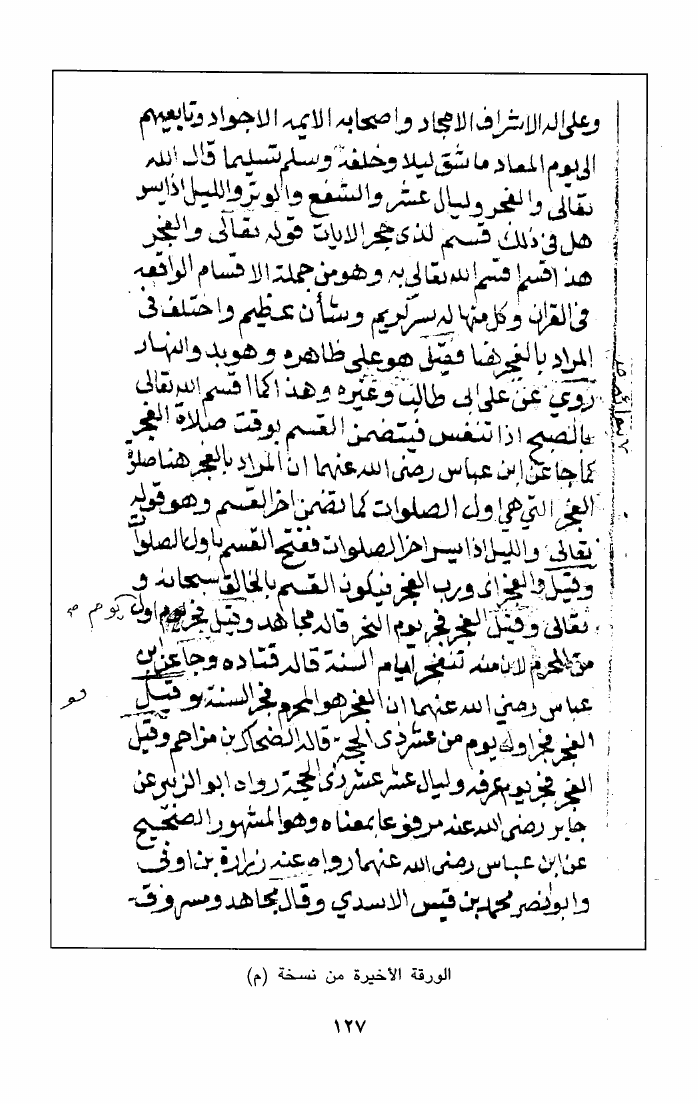 وعلى اله الاشراف الامجاد واصحابه الايمه الاجواد وتابعيهم
الى يوم المعاد ما شق ليلا وخلفه وسلم تسليما قال الله
تعالى والفجر وليال عشر والشفع والوتر والليل اذا يسر
هل في ذلك قسم لذي حجر الايات قوله تعالى والفجر
هذا قسم اقسم الله تعالى به وهو من جملة الاقسام الواقعه
في القران وكل منها له سر كريم وشأن عظيم واختلف في
المراد بالفجر هنا فقيل هو على ظاهره وهو بدو النهار
روي عن على ابى طالب وغيره وهذا كما اقسم الله تعالى
بالصبح اذا تنفس فيتضمن القسم بوقت صلاة الفجر
كما جا عن ابن عباس رضى الله عنهما ان المراد بالفجر هنا صلوة
الفجر التي هي اول الصلوات كما تضمن اخر القسم وهو قوله
تعالى والليل اذا يسر اخر الصلوات ففتح القسم باول الصلوات
وقيل والفجر اى ورب الفجر فيكون القسم بالخالق سبحانه و
تعالى وقيل الفجر فجر يوم النحر قاله مجاهد وقيل فجر اول يوم
من المحرم لان منه تنفجر ايام السنة قاله قتاده وجا عن ابن
عباس رضي الله عنهما ان الفجر هو المحرم فجر السنة وقيل
الفجر فجر اول يوم من عشر ذى الحجة قاله الضحاك بن مزاحم وقيل
الفجر فجر يوم عرفه وليال عشر عشر ذى الحجة رواه ابو الزبير عن
جابر رضى الله عنه مرفوعا بمعناه وهو المشهور الصحيح
عن ابن عباس رضى الله عنهما رواه عنه زرارة بن اوفى
وابو نصر محمد بن قيس الاسدي وقال مجاهد ومسروق
الورقة الأخيرة من نسخة (م)
١٢٧